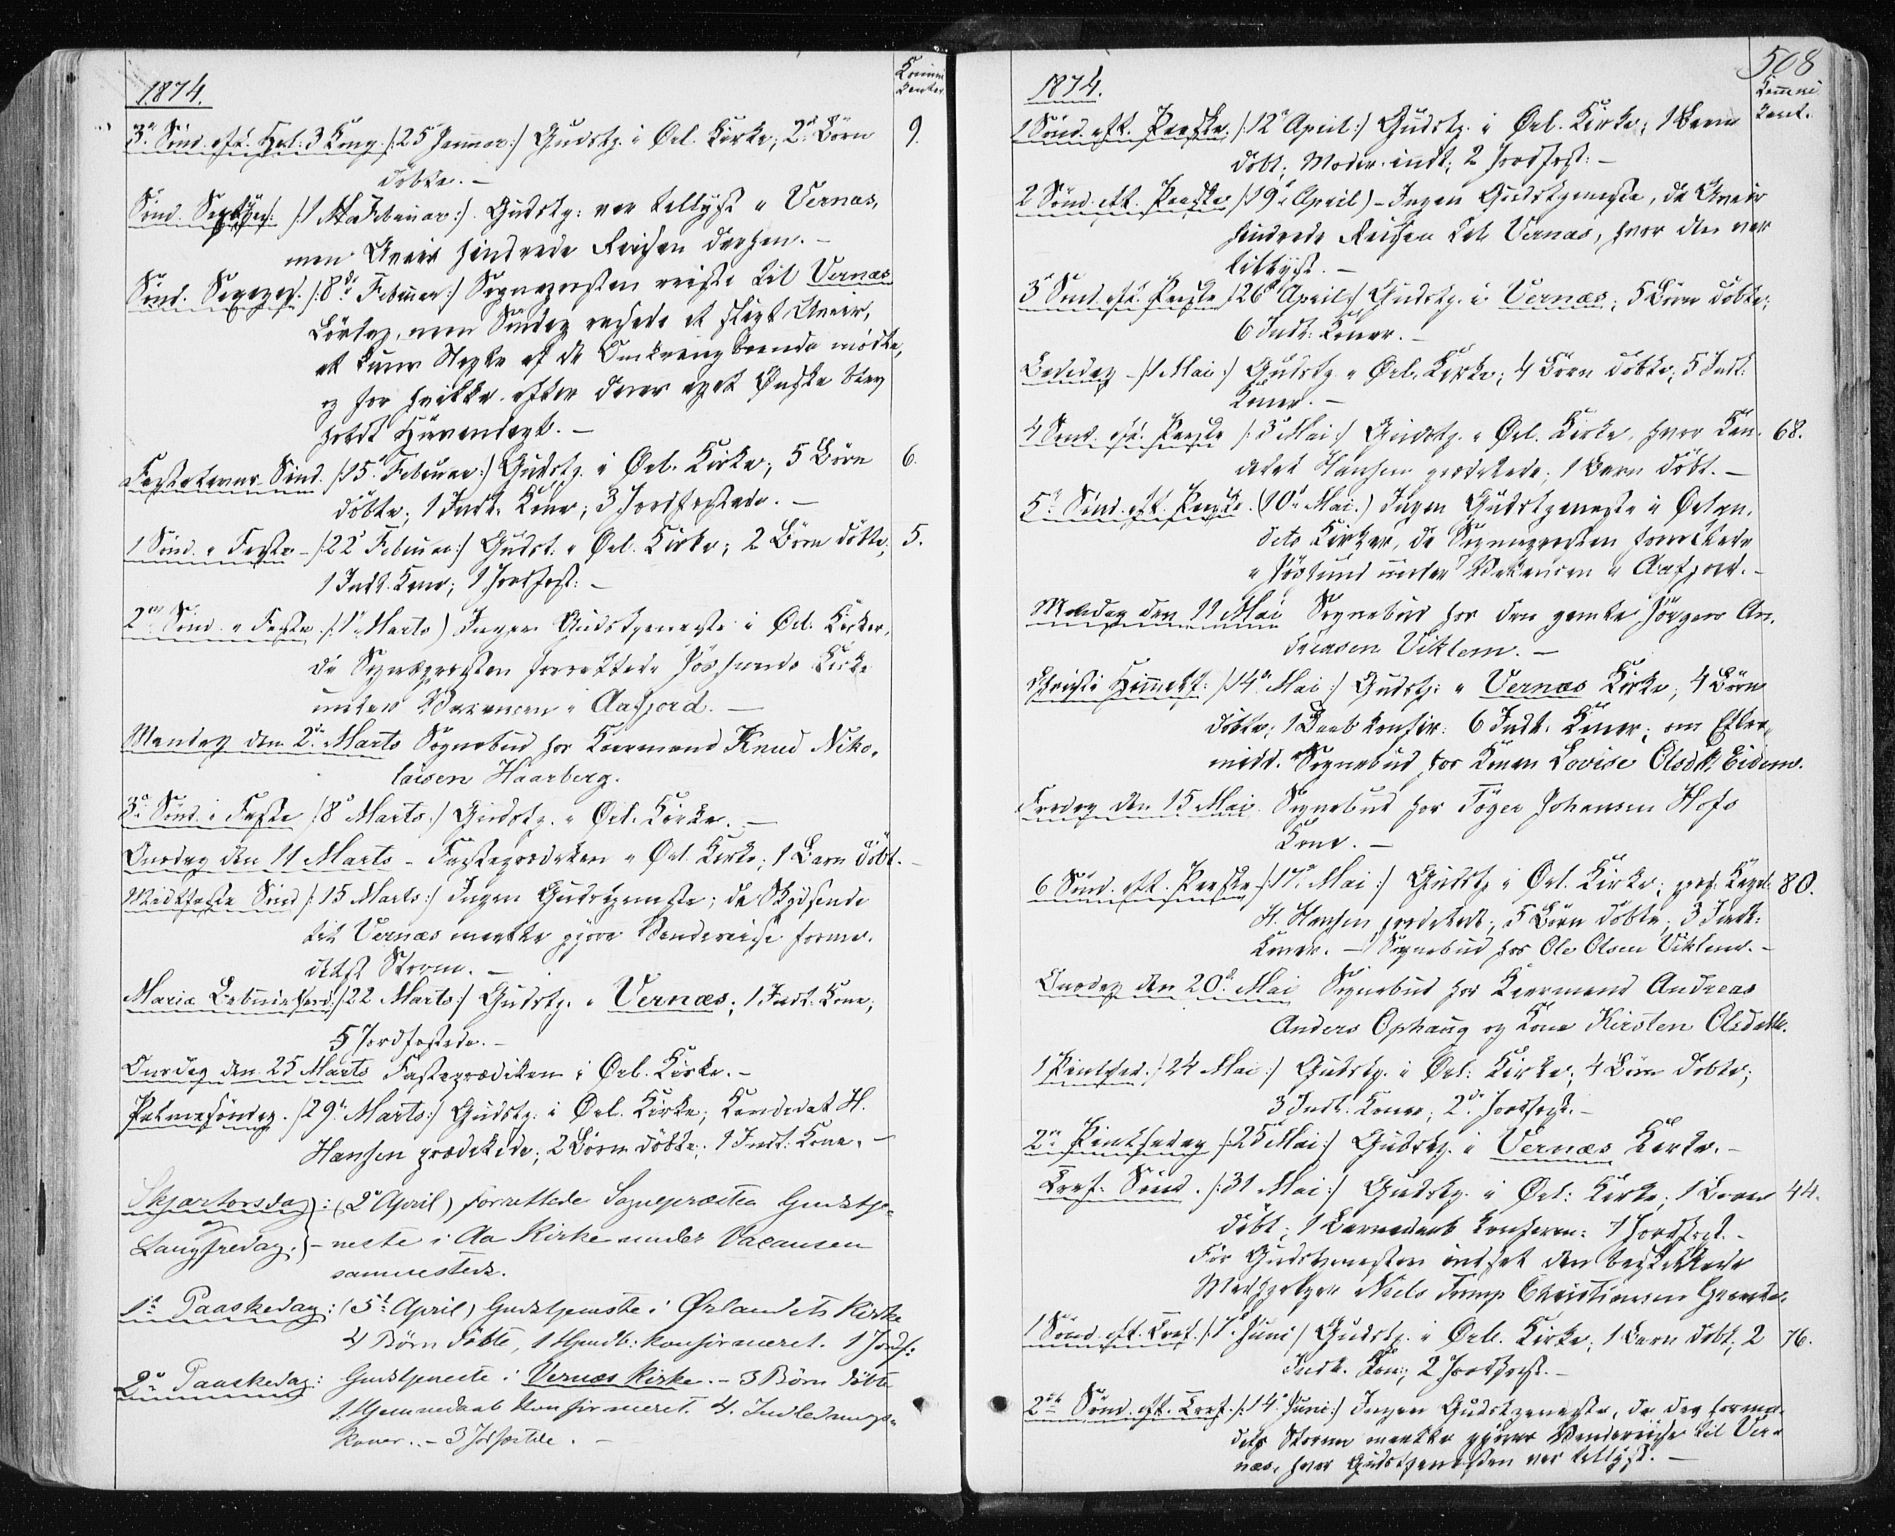 1874.
Kommunikanter
3. Sønd. eft. Hel. 3 Kong. /:25 Januar:/ Gudstj. i Ørl. Kirke; 2 Børn 9.
døbte. –
Sønd. Septuages. /:1 Februar:/ Gudstj. var tillyst i Vernæs,
men Uveir hindrede Reisen derhen. –
Sønd. Sexages. /:8de Februar:/ Sognepræsten reiste til Vernæs
Løverdag, men Søndag rasede et sligt Uveir,
at kun Nogle af de Omkringboende mødte,
og for hvilke efter deres eget Ønske blev
holdt Huusandagt. –
Fastelavns Sønd. /:15 Februar:/ Gudstj. i Ørl. Kirke; 5 Børn 6.
døbte; 1 Indl. Kone; 3 Jordfæstede. –
1 Sønd. i Faste – /:22 Februar:/ Gudstj. i Ørl. Kirke; 2 Børn døbte; 5.
1 Indl. Kone; 1 Jordfæst. –
2den Sønd. i Faste /:1 Marts) Ingen Gudstjeneste i Ørl. Kirker,
da Sognepræsten forrettede Jøssunds Kirke
under Vacancen i Aafjord. –
Mandag den 2. Marts Sognebud hos Kaarmand Knud Niko-
laisen Haarberg.
3. Sønd. i Faste /:8 Marts:/ Gudstj. i Ørl. Kirke. –
Onsdag den 11 Marts – Fasteprædiken i Ørl. Kirke; 1 Barn døbt. –
Midtfaste Sønd /:15 Marts:/ Ingen Gudstjeneste; da Skydsende
til Vernæs maatte gjøre Vendereise forme-
delst Storm. –
Mariæ Bebudelses. /:22 Marts:/ Gudstj. i Vernæs; 1 Indl. Kone;
5 Jordfæstede. –
Onsdag den 25 Marts Fasteprædiken i Ørl. Kirke. –
Palmesøndag. /:29 Marts:/ Gudstj. i Ørl. Kirke; Kandidat H.
Hansen prædikede; 2 Børn døbte; 1 Indl. Kone. –
Skjærtorsdag : (2 April) forrettede Sognepræsten Gudstje-
og
Langfredag: – neste i Aa Kirke under Vacansen
sammesteds.
1st Paaskedag: (5t April) Gudstjeneste i Ørlandets Kirke
4 Børn døbte, 1 Hjmdb: konfirmeret. 1 Jordf:
2n Paaskedag: Gudstjeneste i Vernæs Kirke. – 3 Børn døbte
1. Hjemmedaab konfirmeret. 4. Indlednings-
koner. – 3 Jordfæstede. –
508
1874.
Kommunikant.
1 Sønd. eft. Paaske /:12 April:/ Gudstj. i Ørl. Kirke; 1 Barn
døbt; Moder indl; 2 Jordfæst. –
2 Sønd. eft. Paaske /:19 April) – Ingen Gudstjeneste, da Uveir
hindrede Reisen til Vernæs, hvor den var
tillyst. –
3 Sønd. eft. Paaske /:26 April:/ Gudstj. i Vernæs; 5 Børn døbte;
6 Indl. Koner. –
Bededag – /:1 Mai:/ Gudstj. i Ørl. Kirke; 4 Børn døbte; 5 Indl.
Koner. –
4 Sønd. eft. Paaske /:3 Mai:/ Gudstj. i Ørl. Kirke, hvor Kan- 68.
didat Hansen prædikede; 1 Barn døbt. –
5 Sønd. eft. Paaske. (10 Mai.) Ingen Gudstjeneste i Ørlan-
dets Kirker, da Sognepræsten forrettede
i Jøssund under Vakancen i Aafjord. –
Mandag den 11 Mai Sognebud hos den gamle Jørgen An-
dreasen Viklem. –
Christi Himmelf: /:14 Mai:/ Gudstj: i Vernæs Kirke, 4 Børn
døbte; 1 Daab konfir: 6 Indl. Koner; om Efter-
midd. Sognebud hos Konen Lovise Olsdtr. Eidem.
Fredag den 15 Mai. Sognebud hos Töger Johansen Hofs
Kone. –
6 Sønd. eft. Paaske /:17 Mai:/ Gudstj. i Ørl. Kirke; pers. Kapel. 80.
H. Hansen prædikede; 5 Børn døbte; 3 Indl.
Koner. – Sognebud hos Ole Olsen Viklem. –
Onsdag den 20 Mai Sognebud hos Kaarmand Andreas
Anders Ophaug og Kone Kirsten Olsdattr.
1 Pintsed. /:24 Mai:/ Gudstj. i Ørl: Kirke; 4 Børn døbte;
3 Indl. Koner; 2 Jordfæst. –
2den Pintsedag /:25 Mai:/ Gudstj. i Vernæs Kirke. –
Tref. Sønd. /:31 Mai:/ Gudstj. i Ørl: Kirke; 1 Barn 44.
døbt; 1 Barnedaab konfirm: 7 Jordfæst. –
Før Gudstjenesten indsat den beskikkede
Medhjelper Niels Tramp Christiansen
1 Sønd. eft. Tref. /:7 Juni/ Gudstj. i Ørl. Kirke; 1 Barn døbt; 2 76.
Indl. Kon; 2 Jordfæst. –
2den Sønd. eft. Tref. /:14 Juni:/ Ingen Gudstjeneste, da der forme-
delst Storm maatte gjøres Vendereise til Ver-
næs, hvor Gudstjenesten var tillyst. –